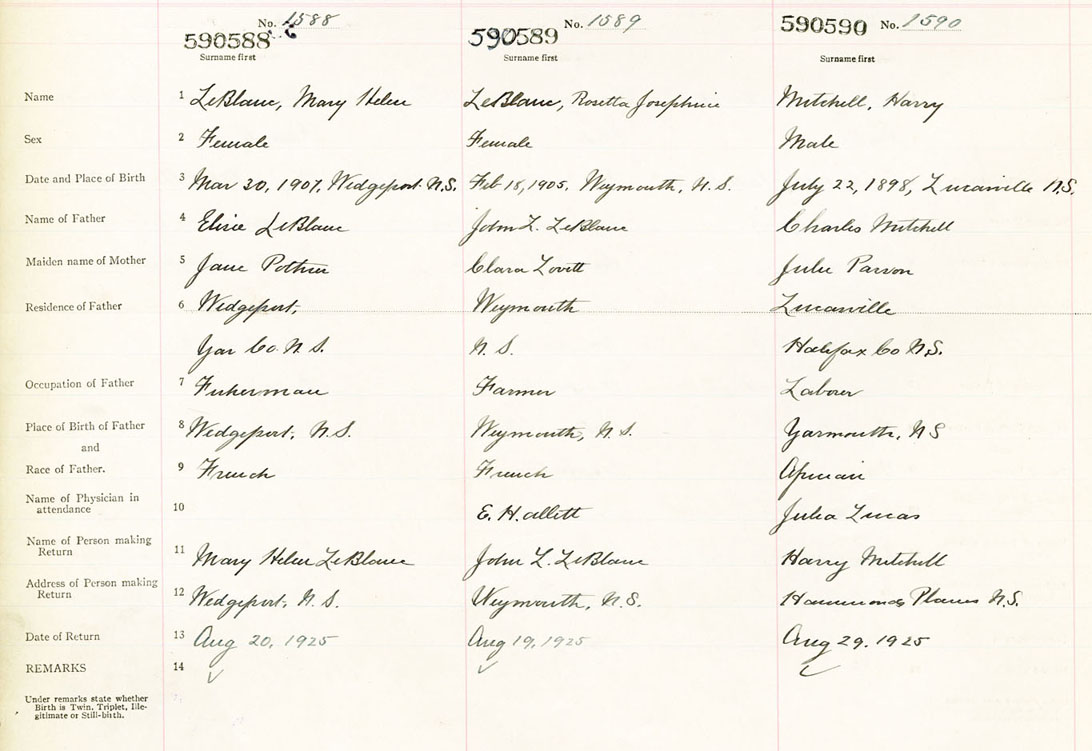 No. 1588 No. 1589 590590 No. 1590
590588 590589
Surname first Surname first Surname first
Name 1 LeBlanc, Mary Helen LeBlanc, Rosetta Josephine Mitchell, Harry
Sex 2 Female Female Male
Date and Place of Birth 3 Mar 20, 1907, Wedgeport N.S. Feb 18, 1905, Weymouth, N.S. July 22, 1898, Lucasville N.S.
Name of Father 4 Elisie LeBlanc John L. LeBlanc Charles Mitchell
Maiden name of Mother 5 Jane Pothier Clara Lovitt Julie Parson
Residence of Father 6 Wedgeport, Weymouth Lucasville
Yar Co. N.S. N.S. Halifax Co N.S.
Occupation of Father 7 Fisherman Farmer Laborer
Place of Birth of Father 8 Wedgeport, N.S. Weymouth, N.S. Yarmouth, N.S
and
Race of Father. 9 French French African
Name of Physician in
attendance 10 E. Hallett Julia Lucas
Name of Person making
Return 11 Mary Helen LeBlanc John L. LeBlanc Harry Mitchell
Address of Person making
Return 12 Wedgeport, N.S. Weymouth, N.S. Hammonds Plains N.S.
Date of Return 13 Aug 20, 1925 Aug 19, 1925 Aug 29, 1925
REMARKS 14
Under remarks state whether
Birth is Twin, Triplet, Ille-
gitimate or Still-birth.